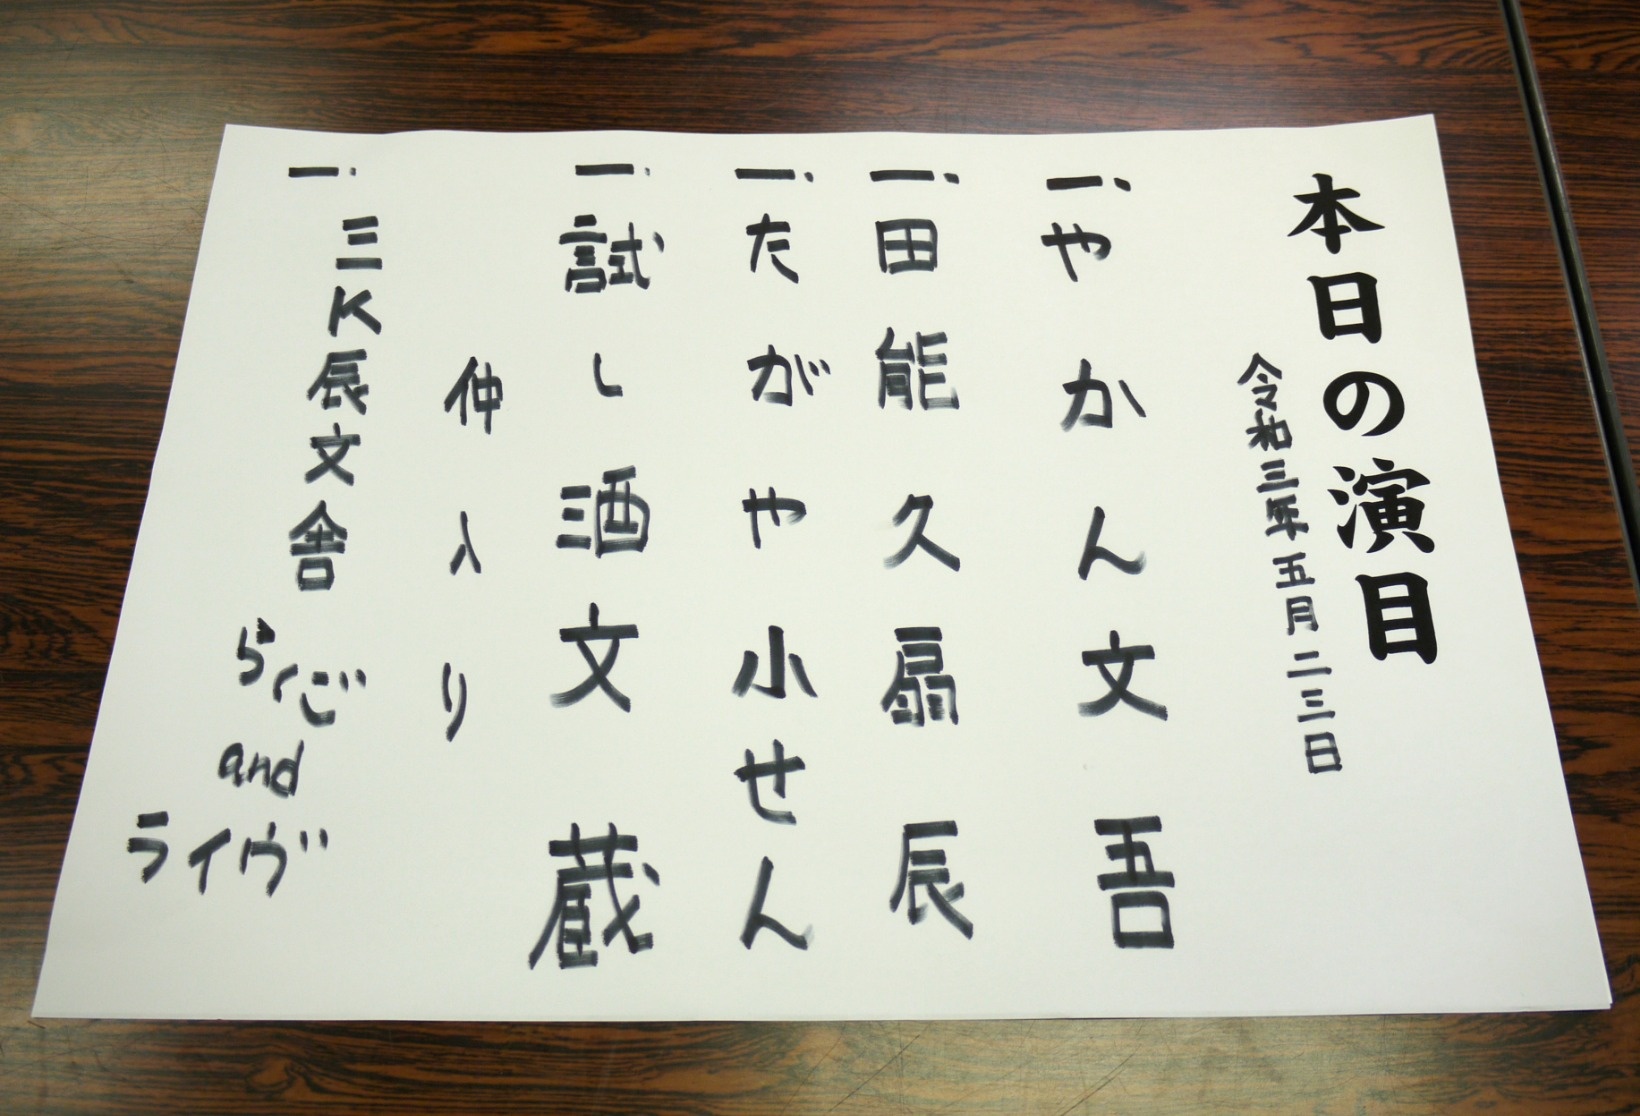 本日の演目
令和三年五月二三日
一、やかん 文吾
一、田能久 扇辰
一、たがや 小せん
一、試し酒 文蔵
仲入り
一、三K辰文舎
らくご
and
ライヴ